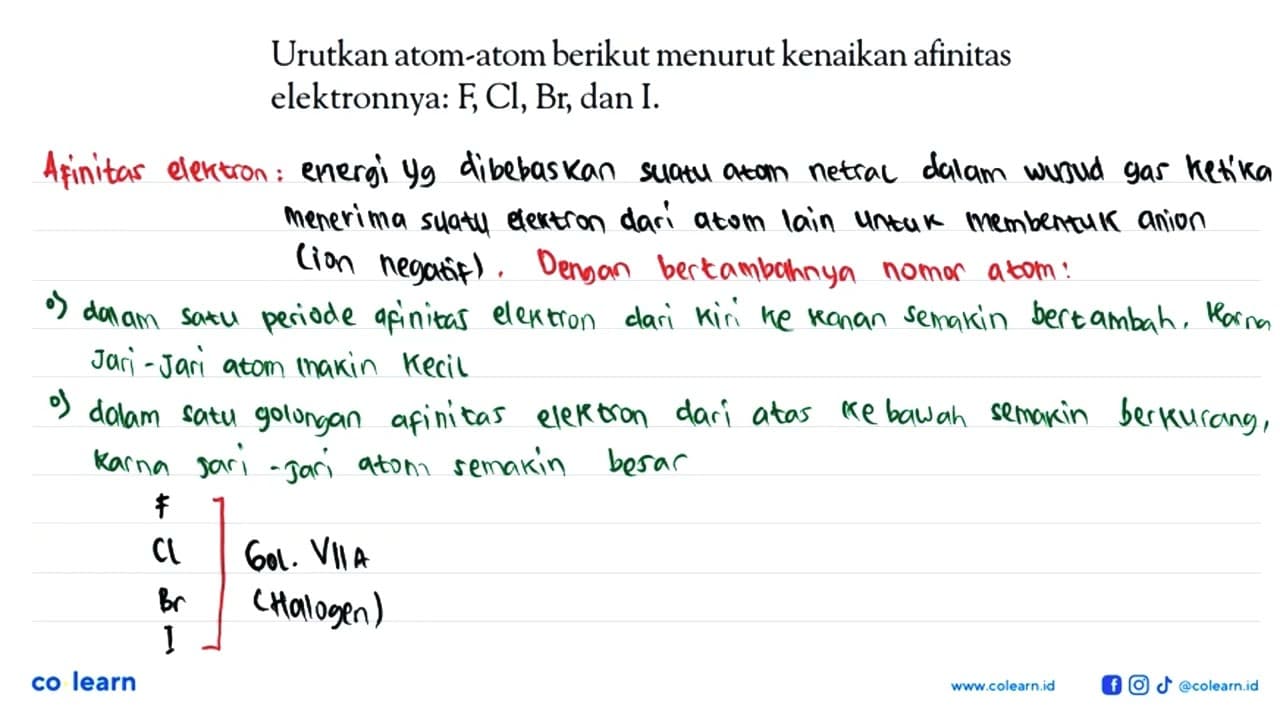 Urutkan atom-atom berikut menurut kenaikan afinitas
elektronnya: F, Cl, Br, dan I.
Afinitas elektron : energi yg dibebaskan suatu atom netral dalam wujud gas ketika
menerima suatu elektron dari atom lain untuk membentuk anion
(ion negatif). Dengan bertambahnya nomor atom :
o) dalam satu periode afinitas elektron dari kiri ke kanan semakin bertambah, karna
Jari-Jari atom makin kecil
o) dalam satu golongan afinitas elektron dari atas ke bawah semakin berkurang,
karna jari-jari atom semakin besar
F
Cl
Br
I
Gol. VIIA
(Halogen)
co learn
www.colearn.id
@colearn.id